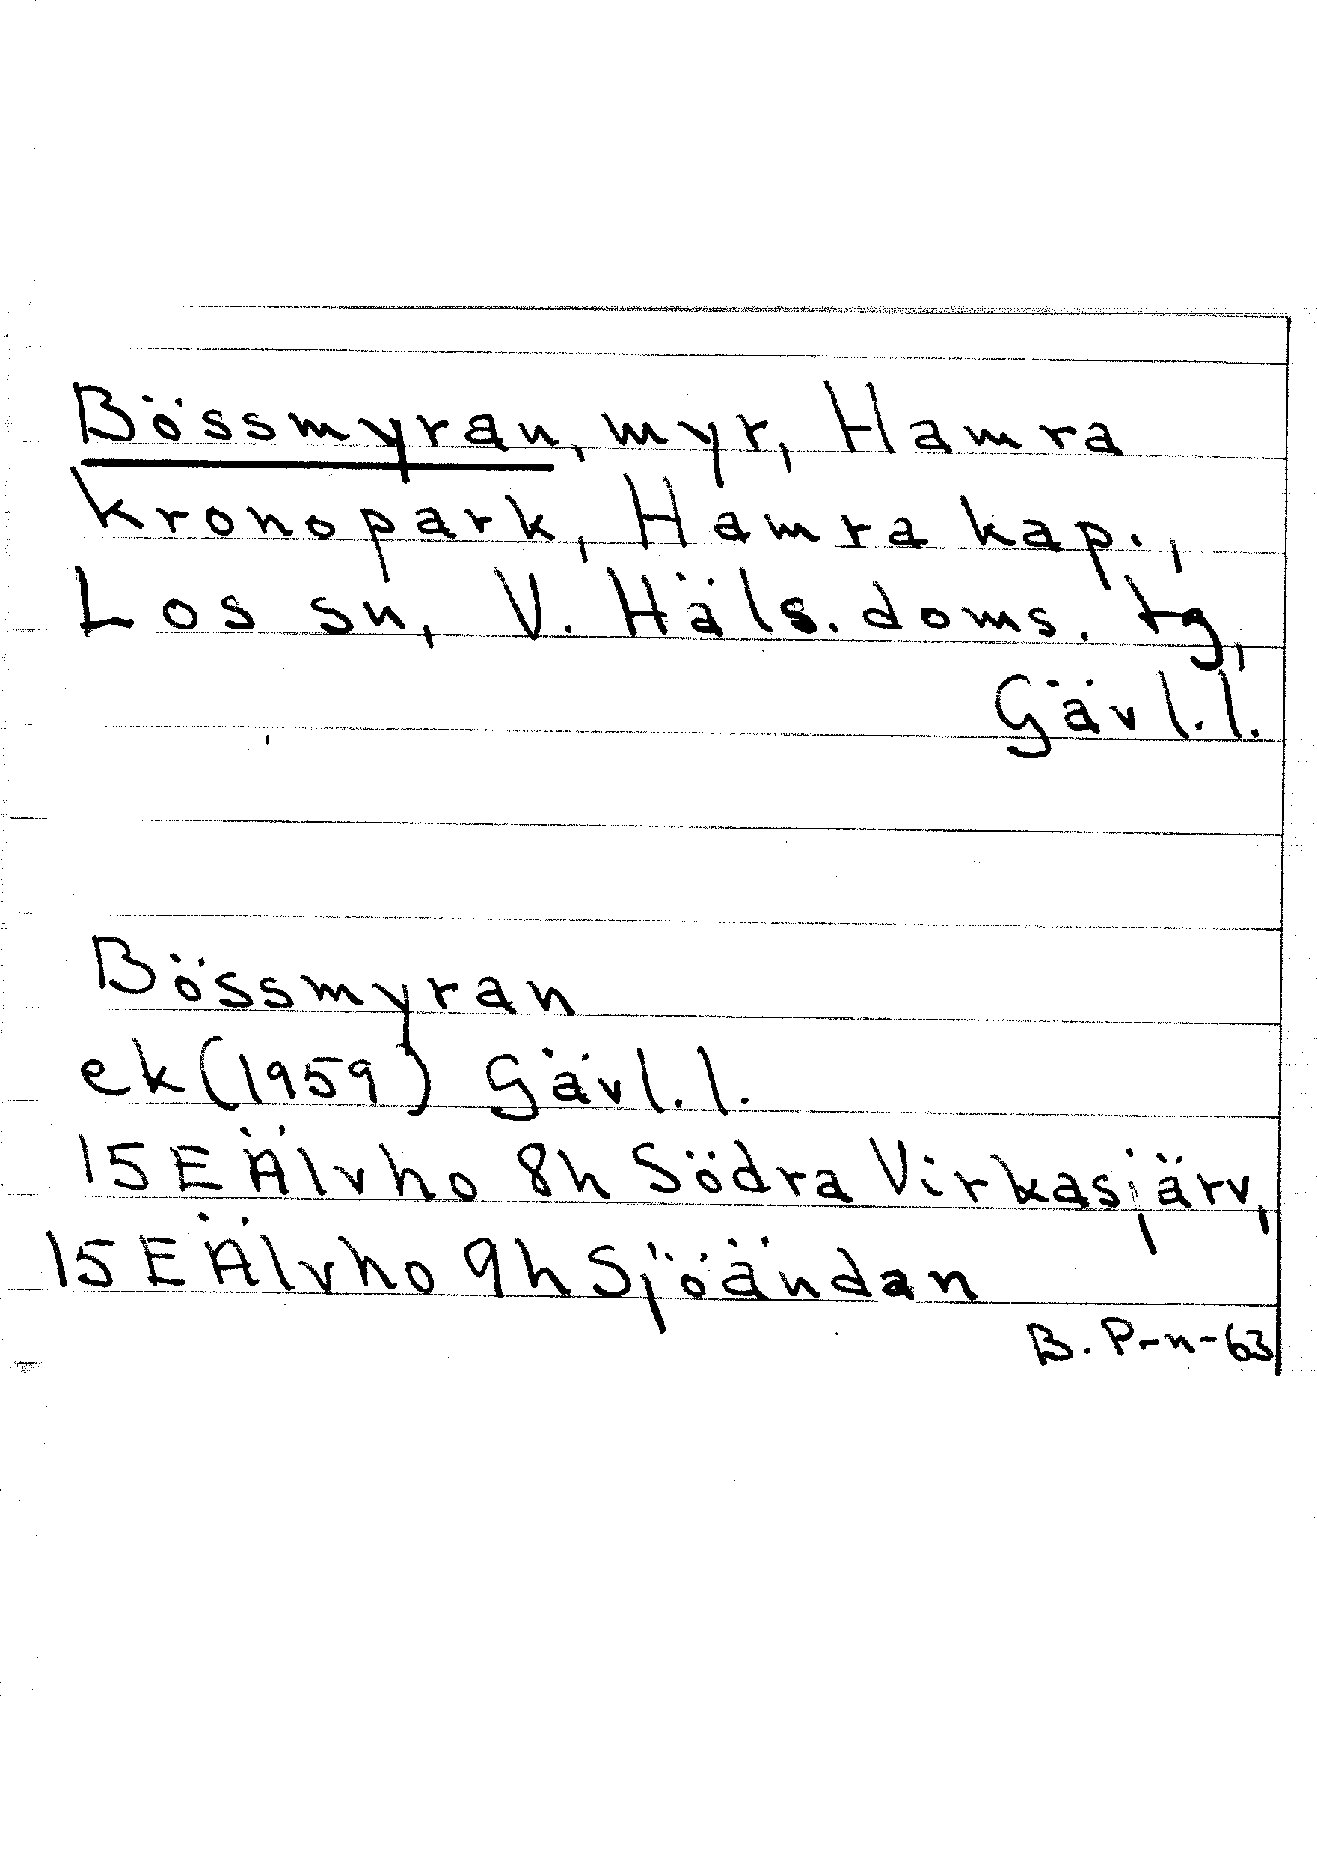 Bössmyran, myr, Hamra
kronopark, Hamra kap.,
Los sn, V. Häls. doms. tg,
Gävl. l.
Bössmyran
ek (1959) Gävl. l.
15 E Älvho 8h Södra Virkasjärv,
15 E Älvho 9h Sjöändan
B. P-n-63